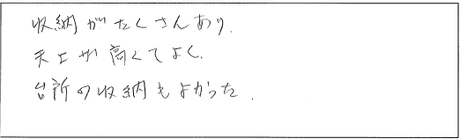 収納がたくさんあり.
天上が高くてよく.
台所の収納もよかった.